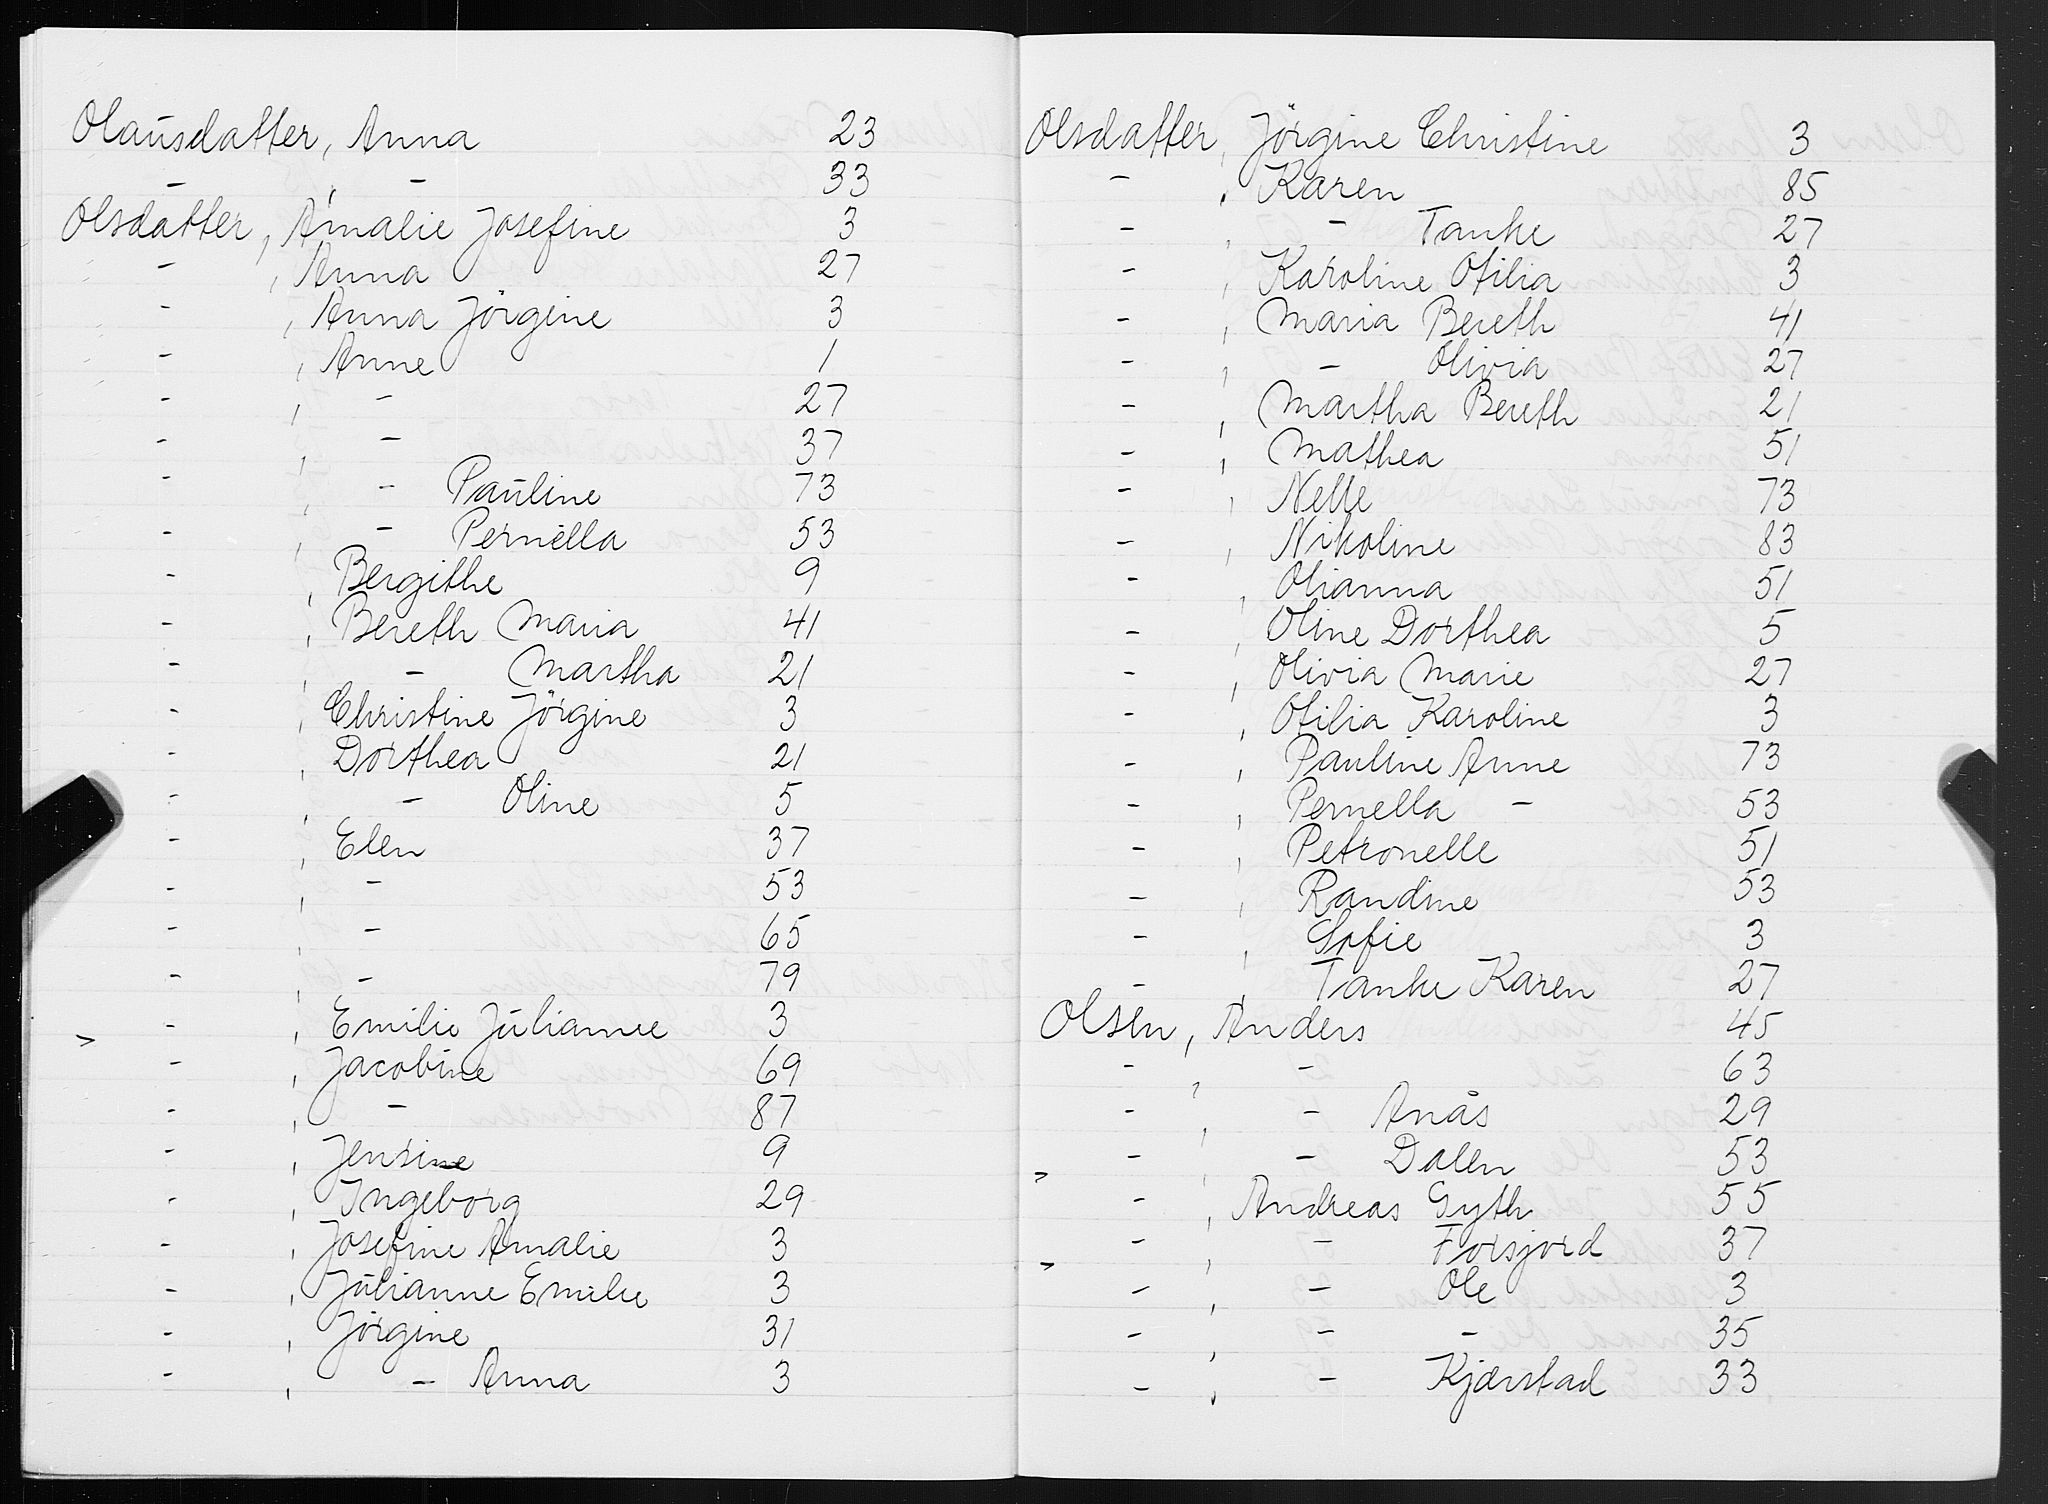 Olausdatter, Anna 23
- , - 33
Olsdatter, Amalie Josefine 3
- , Anna 27
- , Anna Jörgine 3
- , Anne 1
- , - 27
- , - 37
- , - Pauline 73
- , - Pernella 53
- , Bergithe 9
- , Bereth Maria 41
- , - Martha 21
- , Christine Jörgine 3
- , Dorthea 21
- , - Oline 5
- , Elen 37
- , - 53
- , - 65
- , - 79
- , Emilie Julianne 3
> - , Jacobine 69
- , - 87
- , Jensine 9
- , Ingeborg 29
- , Josefine Amalie 3
- , Julianne Emilie 3
- , Jörgine 31
- , - Anna 3
Olsdatter, Jörgine Christine 3
- , Karen 85
- , - Tanke 27
- , Karoline Otilia 3
- , Maria Bereth 41
- , - Olivia 27
- , Martha Bereth 21
- , Mathea 51
- , Nelle 73
- , Nikoline 83
- , Olianna 51
- , Oline Dorthea 5
- , Olivia Marie 27
- , Otilia Karoline 3
- , Pauline Anne 73
- , Pernella - 53
- , Petronelle 51
- , Randine 53
- , Sofie 3
- , Tanke Karen 27
Olsen, Anders 45
- , - 63
- , - Anås 29
- , - Dalen 53
> - , Andreas Gyth 55
- , - Forsjord 37
> - , - Ole 3
- , - - 35
- , - Kjærstad 33